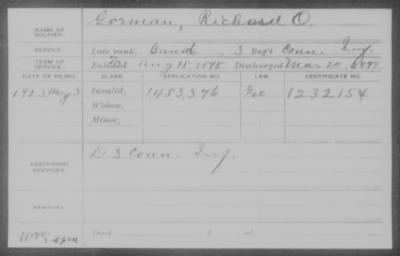 NAME OF SOLDIER: Gorman, Richard O.
SERVICE: Late rank, Band, 3 Regt Conn. Inf.
TERM OF SERVICE: Enlisted Aug 18, 1898 Discharged Mar 20, 1899
DATE OF FILING. CLASS. APPLICATION NO. LAW. CERTIFICATE NO.
1923 May 3 Invalid, 1,483,376 1232154
Widow,
Minor,
ADDITIONAL SERVICES: D 3 Conn. Inf.
REMARKS:
Died , at